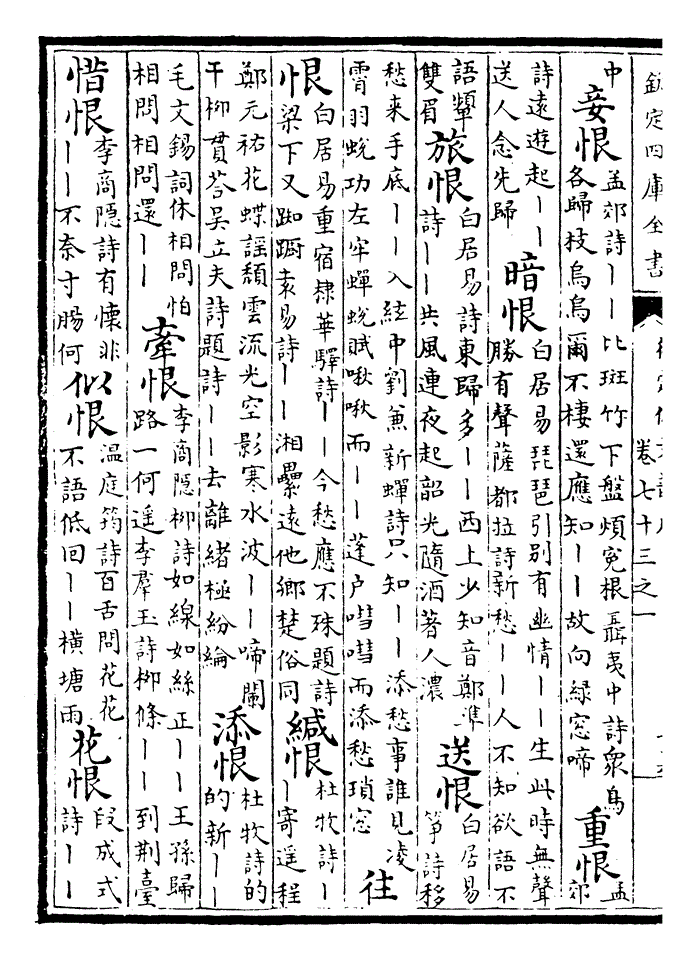 欽定四庫全書
卷七十三之一
中
妾恨
孟郊詩丨丨比斑竹下盤煩冤根聶夷中詩衆鳥
各歸枝烏烏爾不棲還應知丨丨故向緑窓啼
重恨
孟
郊
詩遠遊起丨丨
送人念先歸
暗恨
白居易琵琶引别有幽情丨丨生此時無聲
勝有聲薩都拉詩新愁丨丨人不知欲語不
語顰
雙眉
旅恨
白居易詩東歸多丨丨西上少知音鄭準
詩丨丨共風連夜起韶光隨酒著人濃
送恨
白居易
箏詩移
愁来手底丨丨入絃中劉兼新蟬詩只知丨丨添愁事誰見凌
霄羽蜕功左牢蟬蜕賦啾啾而丨丨蓬户嘒嘒而添愁瑣窓
往
恨
白居易重宿棣華驛詩丨丨今愁應不殊題詩
梁下又踟蹰袁易詩丨丨湘纍遠他鄉楚俗同
緘恨
杜牧詩丨
丨寄遥程
鄭元祐花蝶謡頽雲流光空影寒水波丨丨啼闌
干柳貫荅吴立夫詩題詩丨丨去離緒極紛綸
添恨
杜牧詩的
的新丨丨
毛文錫詞休相問怕
相問相問還丨丨
牽恨
李商隱柳詩如線如絲正丨丨王孫歸
路一何遥李羣玉詩柳條丨丨到荆臺
惜恨
李商隱詩有懷非
丨丨不奈寸腸何
似恨
温庭筠詩百舌問花花
不語低回丨丨横塘雨
花恨
段成式
詩丨丨